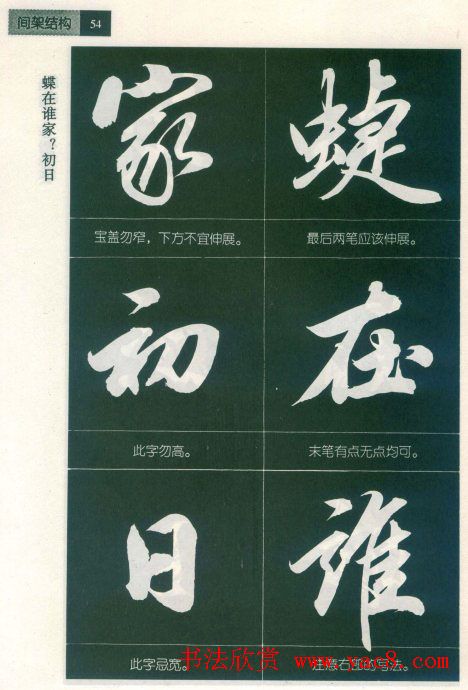 间架结构 54
蝶在谁家？初日
蝶
最后两笔应该伸展。
在
末笔有点无点均可。
谁
注意右部的写法。
家
宝盖勿窄，下方不宜伸展。
初
此字勿高。
日
此字忌宽。
书法欣赏 www.yac8.com